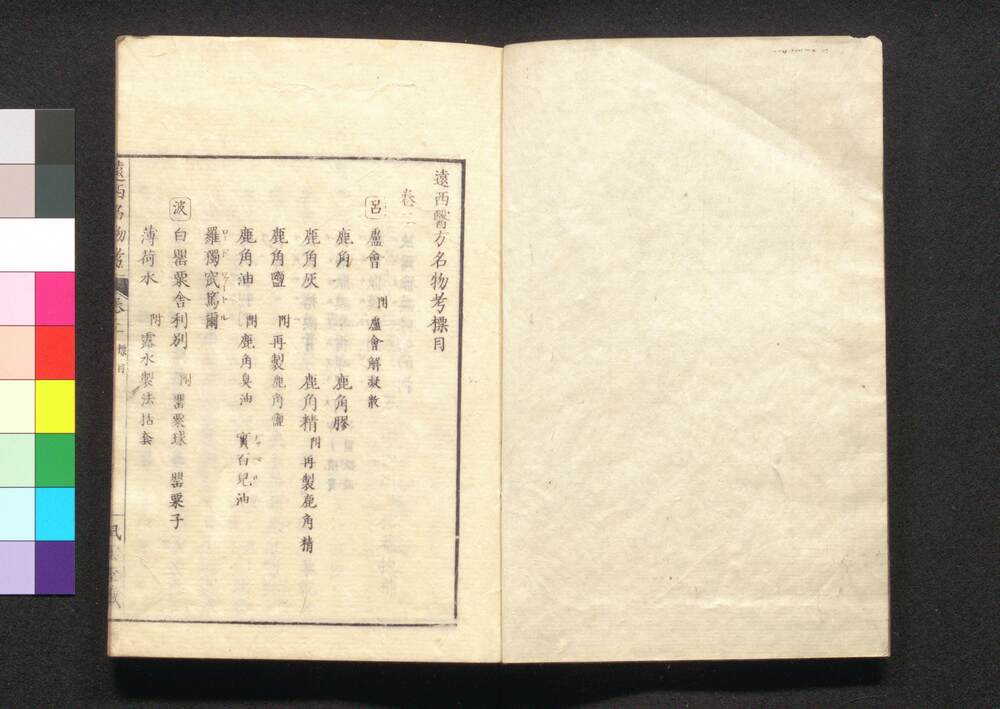 遠西醫方名物考標目
卷二
呂 蘆會 附 蘆會解凝散
鹿角 鹿角膠
鹿角灰 鹿角精 附 再製鹿角精
鹿角鹽 附 再製鹿角鹽
鹿角油 附 鹿角臭油 實百兒油
羅獨宓篤爾
波 白罌粟舎利別 附 罌粟球 罌粟子
薄荷水 附 露水製法括套
遠西名物考 卷二 標目